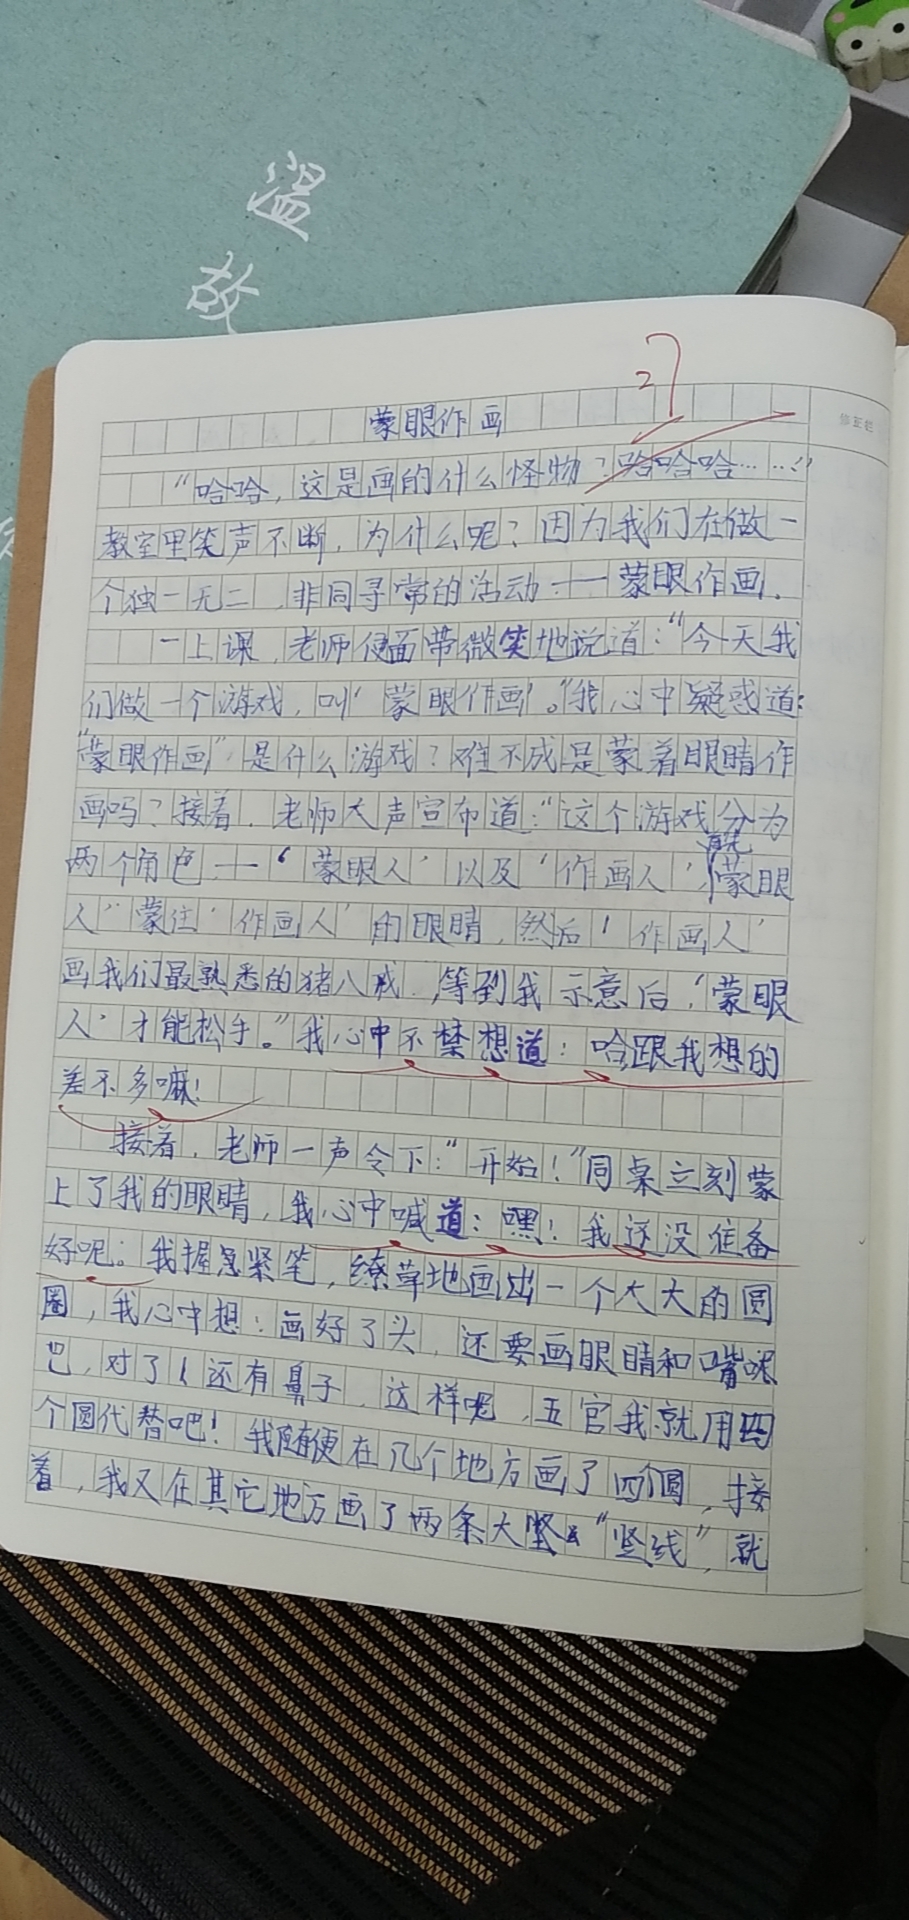 温
故
27
修正栏
蒙眼作画
“哈哈，这是画的什么怪物？哈哈哈……”
教室里笑声不断，为什么呢？因为我们在做一
个独一无二、非同寻常的活动——蒙眼作画。
一上课，老师便面带微笑地说道：“今天我
们做一个游戏，叫‘蒙眼作画’。”我心中疑惑道：
“蒙眼作画”是什么游戏？难不成是蒙着眼睛作
画吗？接着，老师大声宣布道：“这个游戏分为
两个角色——‘蒙眼人’以及‘作画人’，首先‘蒙眼
人’蒙住‘作画人’的眼睛，然后‘作画人’
画我们最熟悉的猪八戒，等到我示意后，‘蒙眼
人’才能松手。”我心中不禁想道：哈，跟我想的
差不多嘛！
接着，老师一声令下：“开始！”同桌立刻蒙
上了我的眼睛，我心中喊道：嘿！我还没准备
好呢。我握急紧笔，缭草地画出一个大大的圆
圈，我心中想：画好了头，还要画眼睛和嘴呢
巴，对了！还有鼻子，这样呢，五官我就用四
个圆代替吧！我随便在几个地方画了四个圆，接
着，我又在其它地方画了两条大竖“竖线”，就